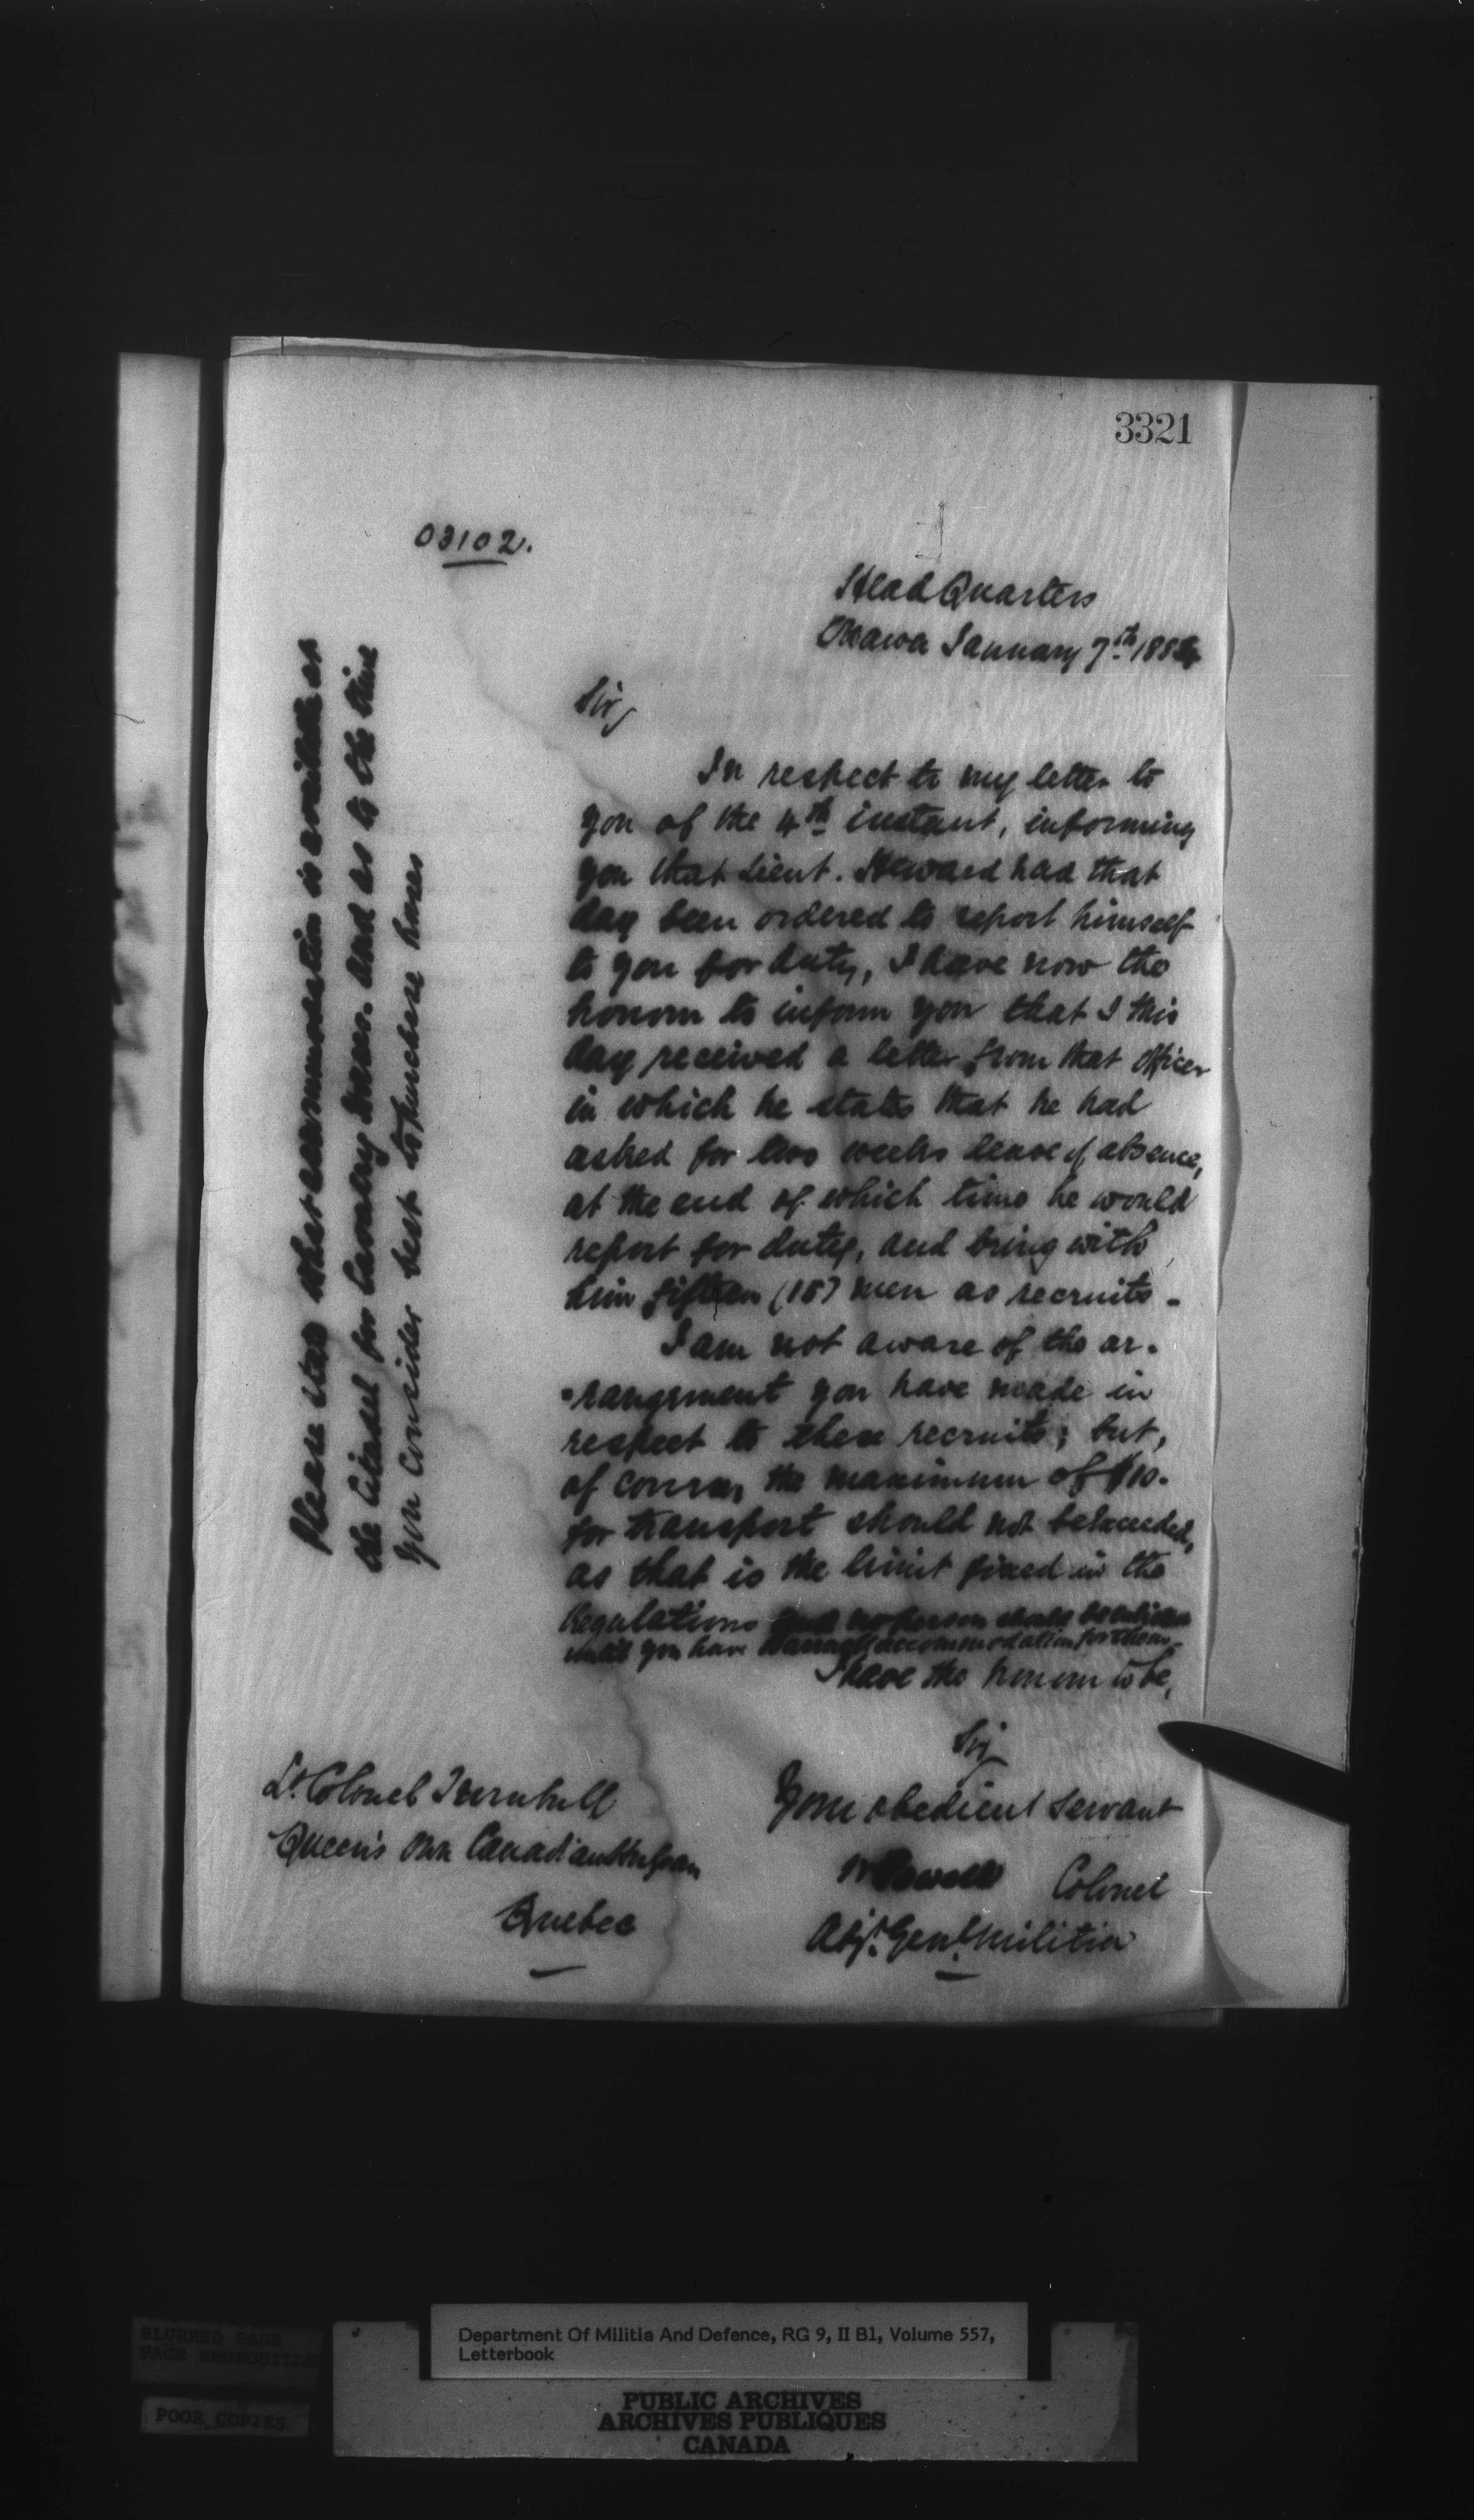 3321
03102.
Head Quarters
Ottawa January 7th 1884
Sir,
In respect to my letter to
you of the 4th instant, informing
you that Lieut. Heward had that
day been ordered to report himself
to you for duty, I have now the
honour to inform you that I this
day received a letter from that Officer
in which he states that he had
asked for two weeks leave of absence,
at the end of which time he would
report for duty, and bring with
him fifteen (15) men as recruits -
I am not aware of the ar-
-rangement you have made in
respect to these recruits; but,
of course, the maximum of $10.
for transport should not be exceeded,
as that is the limit fixed in the
Regulations and no person should be enlisted
until you have barrack accommodation for them -
I have the honour to be,
Sir
Your obedient Servant
W Powell Colonel
Adjt. Genl. Militia
Lt. Colonel Turnbull
Queen's Own Canadian Hussars
Quebec
Please state what accommodation is available at
the Citadel for Cavalry Horses. And as to the time
you consider best to purchase horses
BLURRED PAGE
PAGE EMBROUILLÉE
POOR COPIES
Department Of Militia And Defence, RG 9, II B1, Volume 557,
Letterbook
PUBLIC ARCHIVES
ARCHIVES PUBLIQUES
CANADA